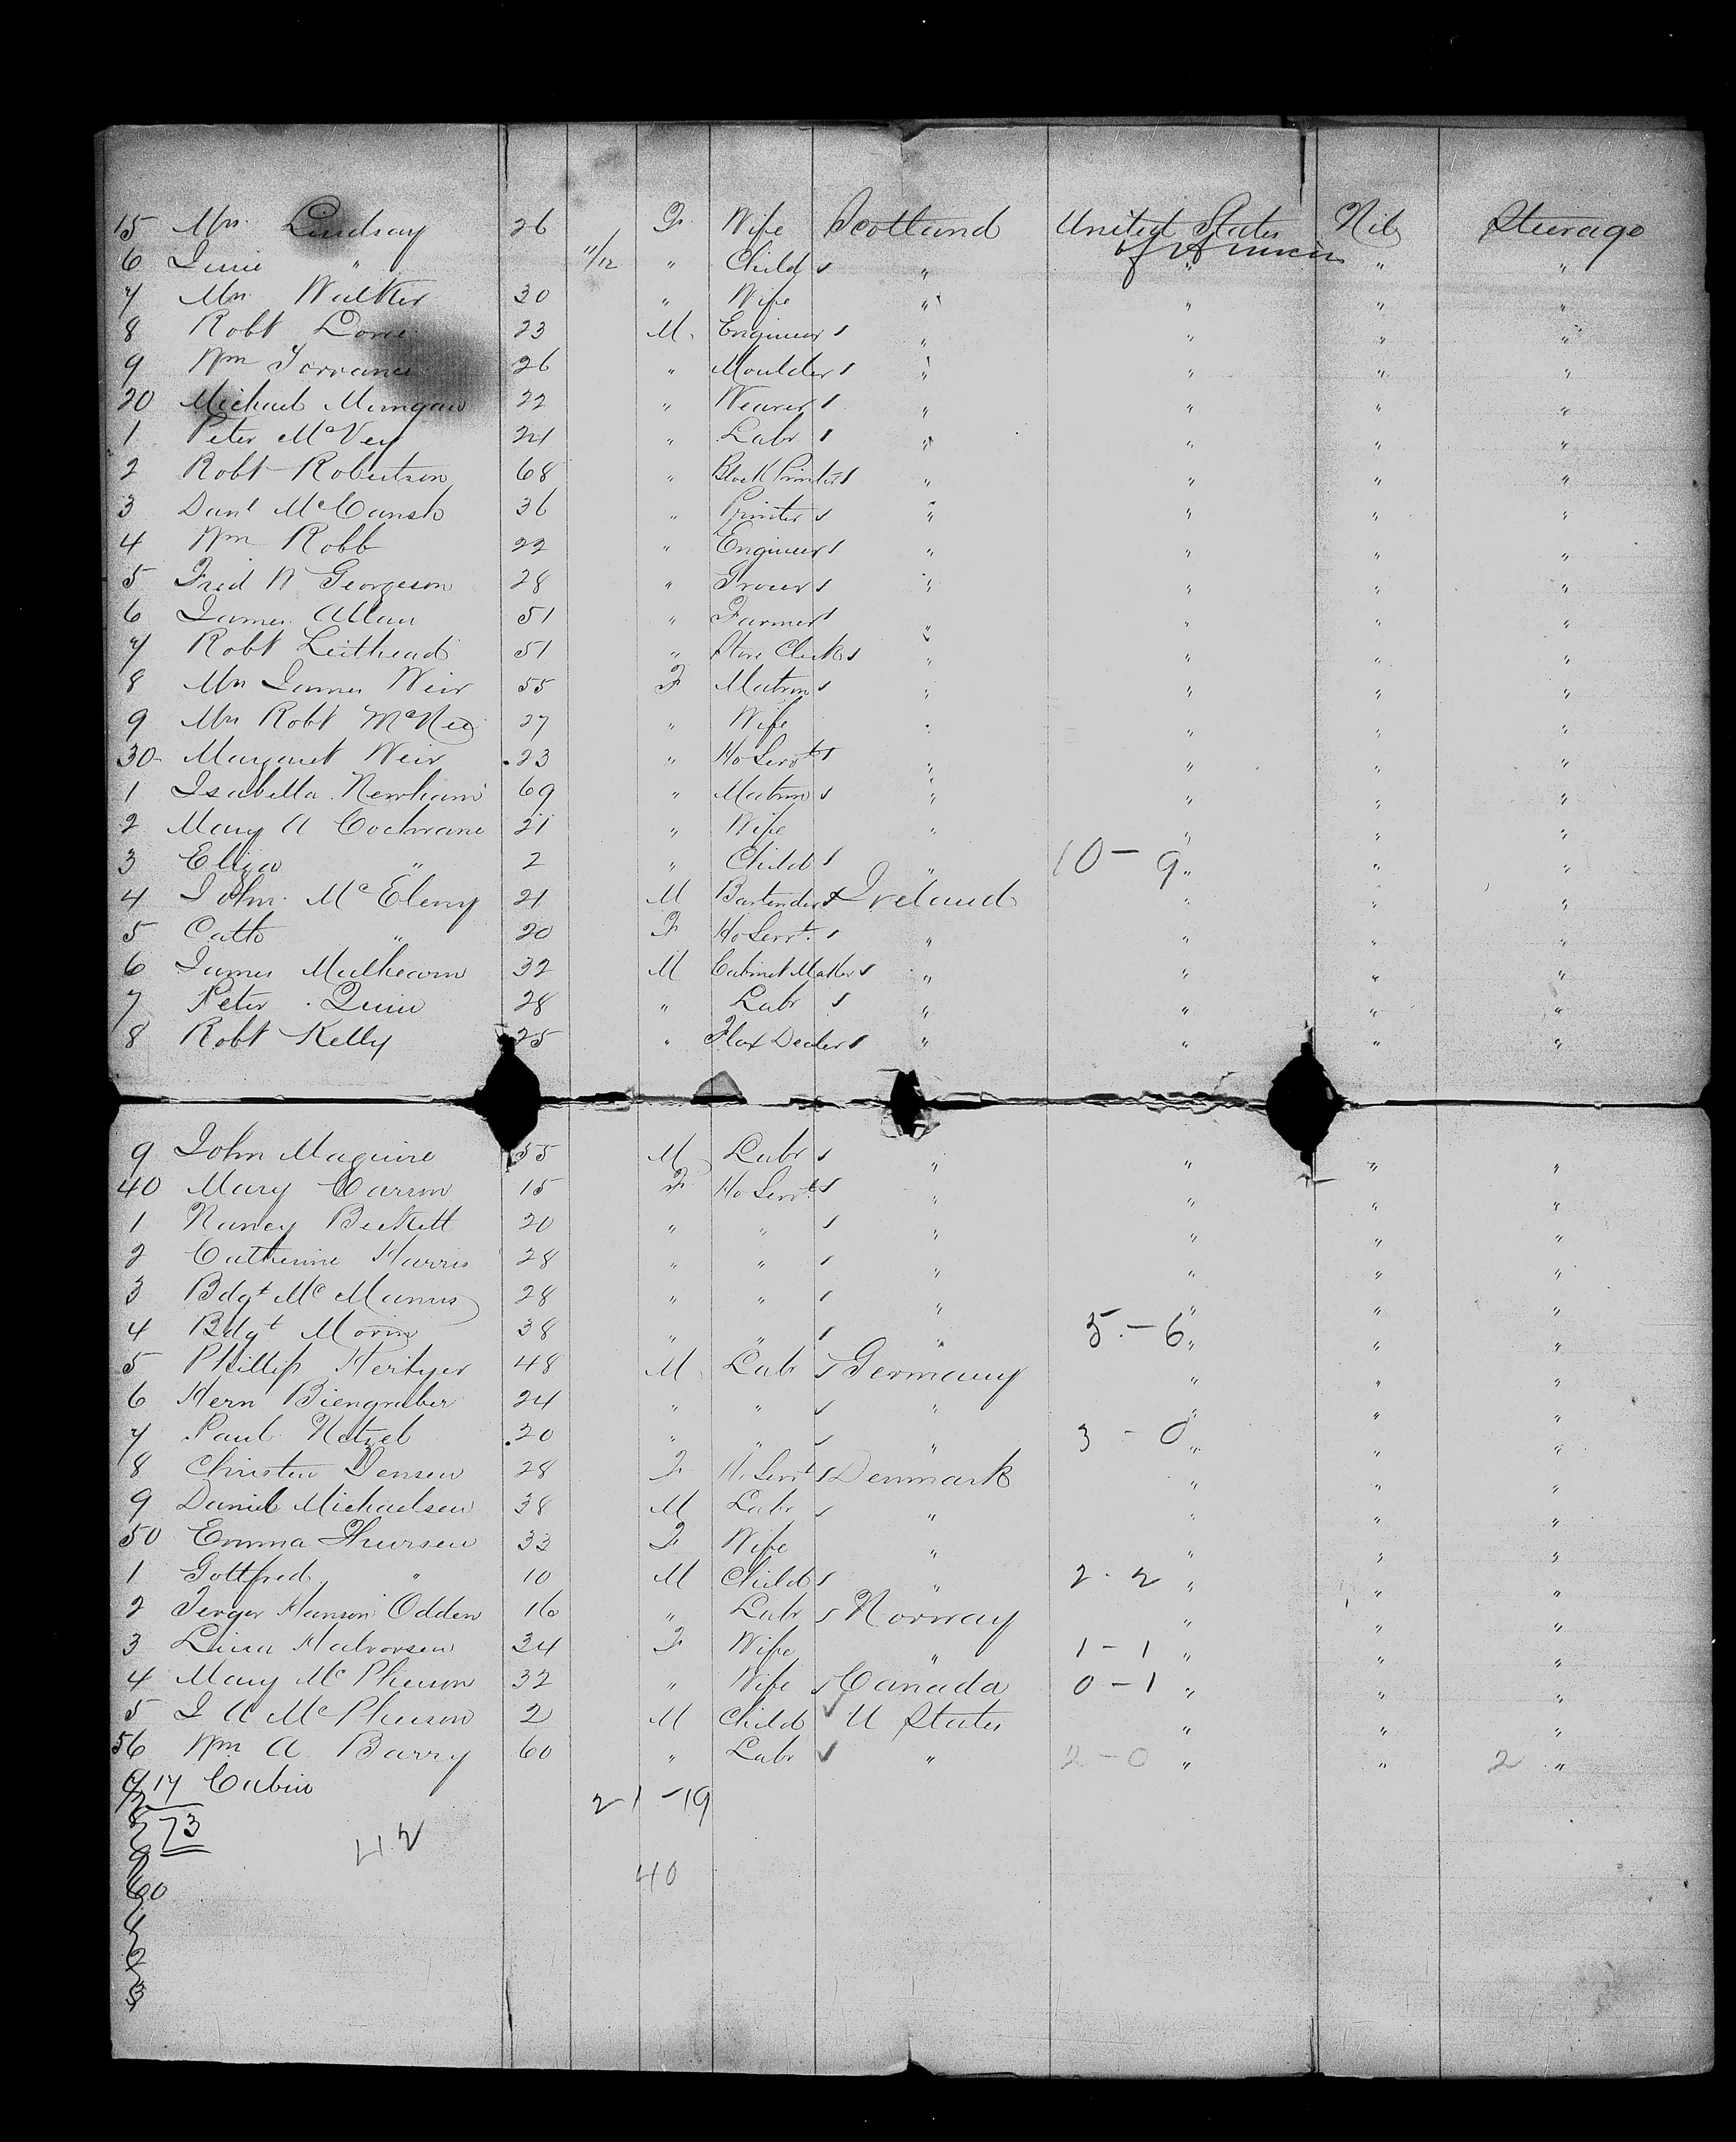 15 Mrs Lindsay 26 F Wife Scotland United States of America Nil Steerage
6 " 11/12 " Child " " " "
7 Mrs Walker 30 " Wife " " " "
8 Robt 23 M. Engineer " " " "
9 Wm Torrance 26 " Moulder " " " "
20 Michael 22 " Weaver " " " "
1 Peter McVey 24 " Labr " " " "
2 Robt Robertson 68 " Block Printer " " " "
3 Danl 36 " Printer " " " "
4 Wm Robb 22 " Engineer " " " "
5 Fred W Georgeson 28 " Grocer " " " "
6 James Allan 51 " Farmer " " " "
7 Robt Leithead 51 " Store Clerk " " " "
8 Mrs James Weir 55 F Matron " " " "
9 Mrs Robt 27 " Wife " " " "
30 Margaret Weir 23 " Ho Servt " " " "
1 Isabella Newham 69 " Matron " " " "
2 Mary A Cochrane 21 " Wife " " " "
3 Eliza " 2 " Child " 10 - 9 " " "
4 John McEleny 21 M Bartender Ireland " " "
5 Cath " 20 F Ho Servt. " " " "
6 James Mulhearn 32 M Cabinet Maker " " " "
7 Peter Quin 28 " Labr " " " "
8 Robt Kelly 25 " Flax Dealer " " " "
9 John Maguire 55 M Labr " " " "
40 Mary Carson 15 F Ho Servt " " " "
1 Nancy Beckett 20 " " " " " "
2 Catherine Harris 28 " " " " " "
3 Bdgt McManus 28 " " " " " "
4 Bdgt 38 " " " 5 - 6 " " "
5 Phillip 48 M Labr Germany " " "
6 Hern Biengraber 24 " " " " " "
7 Paul 20 " " " 3 - 0 " " "
8 Christen Jensen 28 F Ho Servt Denmark " " "
9 Daniel Michaelsen 38 M Labr " " " "
50 Emma 33 F Wife " " " "
1 Gottfred " 10 M Child " 2 - 2 " " "
2 Hanson Odden 16 " Labr Norway " " "
3 Halvorsen 34 F Wife " 1 - 1 " " "
4 Mary McPherson 32 " Wife Canada 0 - 1 " " "
5 J A McPherson 2 M Child U States " " "
56 Wm A Barry 60 " Labr " 2 - 0 " " 2 "
17 Cabin
21 - 19
73
42
40
60